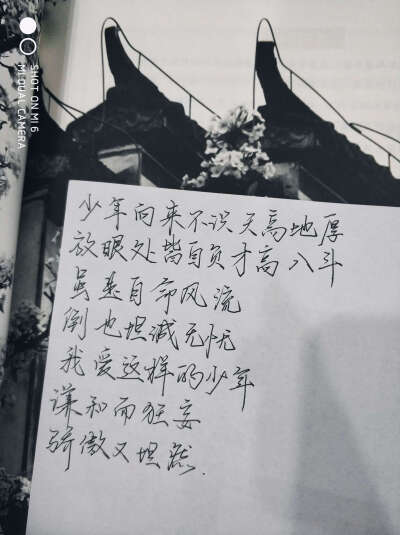 少年向来不识天高地厚
放眼处皆自负才高八斗
虽是自命风流
倒也坦诚无忧
我爱这样的少年
谦和而狂妄
骄傲又坦然.
SHOT ON MI 6
MI DUAL CAMERA